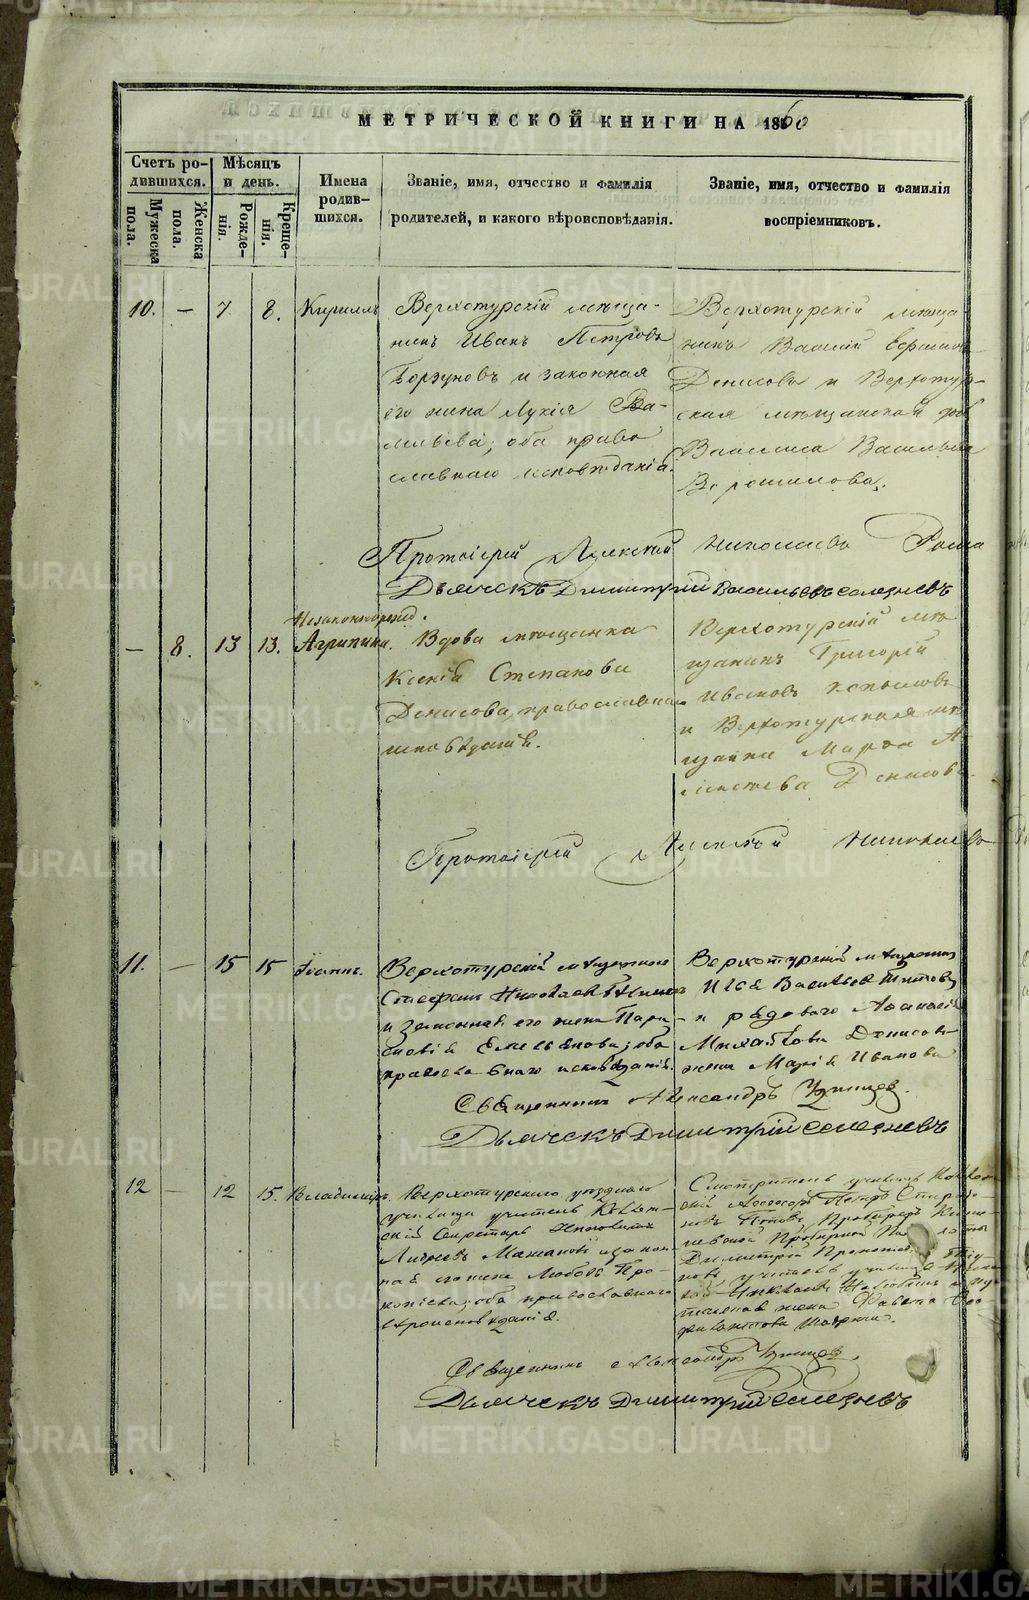 МЕТРИЧЕСКОЙ КНИГИ НА 1860
Счетъ ро-
дившихся.
Мѣсяцъ
и день.
Мужеска
пола.
Женска
пола.
Рожде-
нія.
Креще-
нія.
Имена
родив-
шихся.
Званіе, имя, отчество и фамилія
родителей, и какого вѣроисповѣданія.
Званіе, имя, отчество и фамилія
воспріемниковъ.
10. — 7. 8. Кириллъ
Верхотурскій мѣща-
нинъ Иванъ Петровъ
Борзуновъ и законная
его жена Лукія Ва-
сильева; оба право
славнаго исповѣданія.
Верхотурскій мѣща
нинъ Василій
Денисовъ и Верхотур-
ская мѣщанская
Василиса Васильева
Ворошилова.
Протоіерей Алексій Николаевъ
Дьячекъ Димитрій Васильевъ Селезневъ
— 8. 13 13.
Незаконнорожд.
Агрипина.
Вдова мѣщанка
Ксенія Степанова
Денисова, православна
исповѣданія.
Верхотурскій мѣ
щанинъ Григорій
Ивановъ Копыловъ
и Верхотурская мѣ
щанка Марфа А
Денисова
Протоіерей Алексѣй Николаевъ
11. — 15 15 Іоаннъ.
Верхотурскій мѣщанинъ
Стефанъ Николаевъ
и законная его жена Пара
сковія Емельянова; оба
православнаго исповѣданія.
Верхотурскій мѣщанинъ
Васильевъ Титовъ
и рядового Афанасія
Михайлова Денисова
жена Марія Иванова
Священникъ Александръ Удинцев.
Дьячекъ Димитрій Селезневъ
12 — 12 15. Владиміръ.
Верхотурскаго уѣзднаго
училища учитель Коллеж-
скій Секретарь Ипполитъ
Андреевъ Мажановъ и закон
ная его жена Любовь Про-
копьева; оба православнаго
вѣроисповѣданія.
Смотритель училищъ Коллеж
скій Ассесоръ Петръ Спиридо-
новъ Поповъ,
Димитрій
жена
Священникъ Александръ Удинцев.
Дьячекъ Димитрій Селезневъ
METRIKI.GASO-URAL.RU